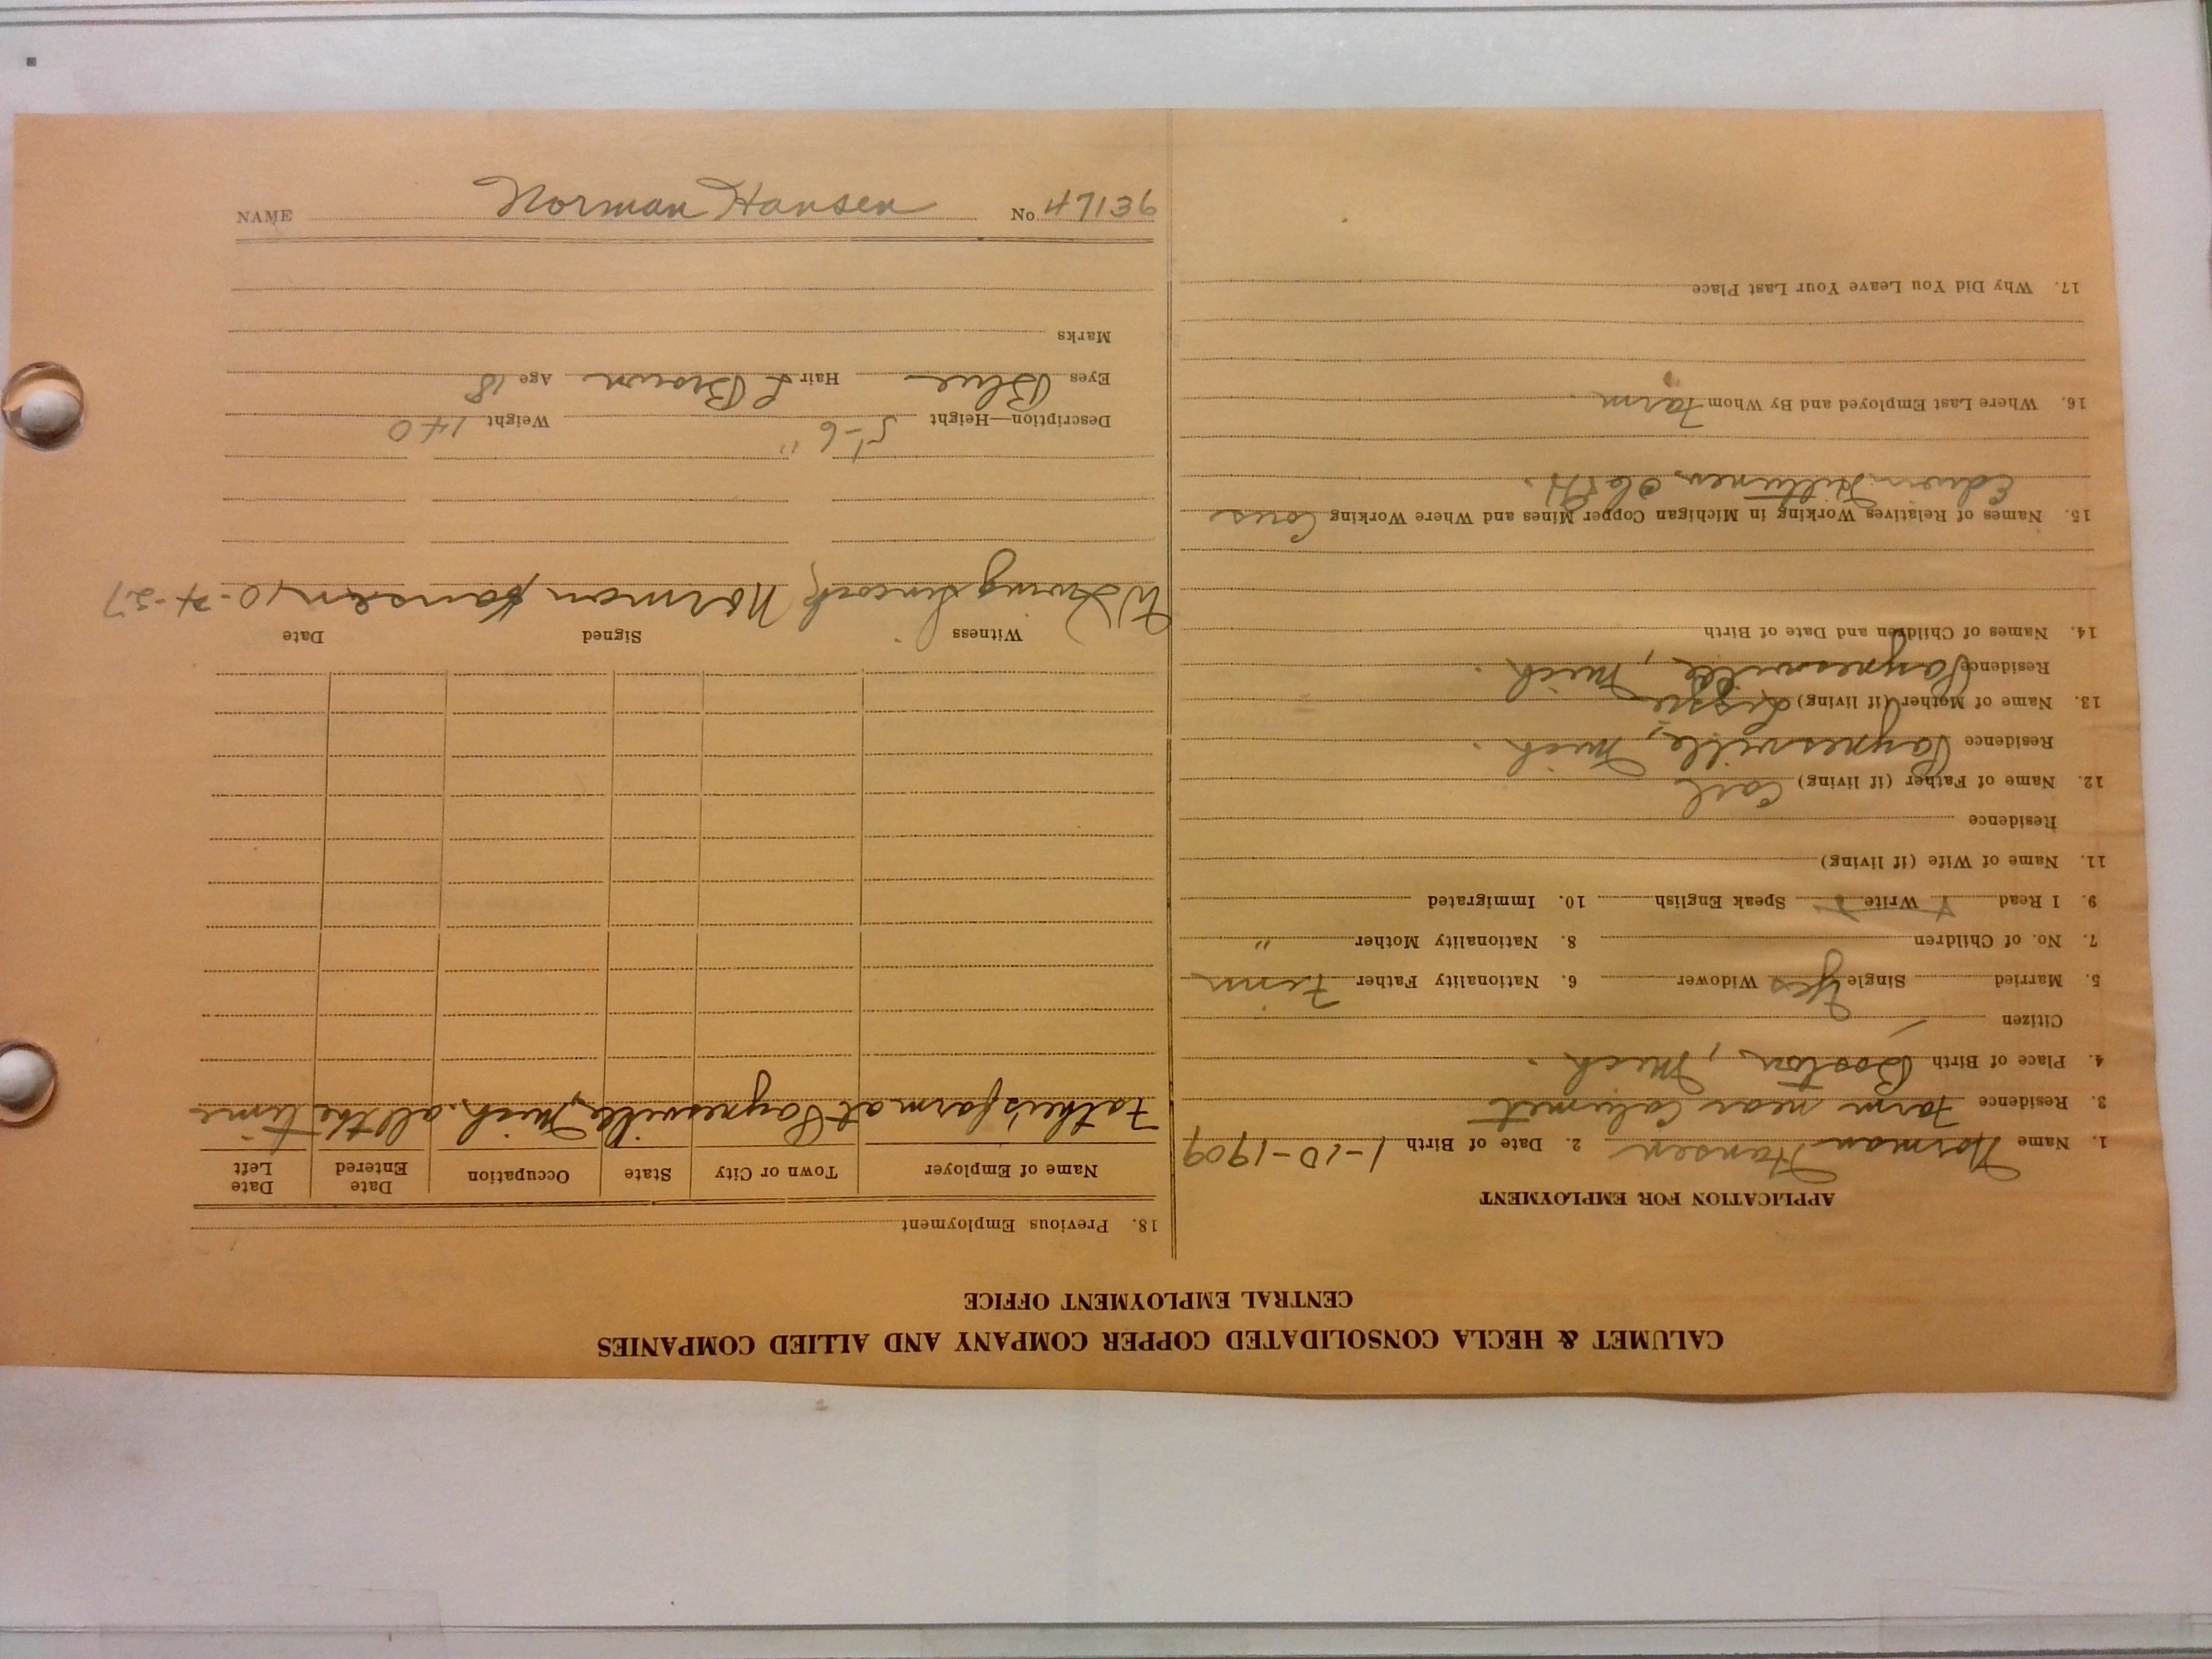 CALUMET & HECLA CONSOLIDATED COPPER COMPANY AND ALLIED COMPANIES
CENTRAL EMPLOYMENT OFFICE
APPLICATION FOR EMPLOYMENT
1. Name Norman Hansen 2. Date of Birth 1-10-1909
3. Residence Farm near Calumet
4. Place of Birth Boston, Mich.
Citizen
5. Married Single Yes Widower 6. Nationality Father Finn
7. No. of Children 8. Nationality Mother "
9. I Read Y Write Y Speak English 10. Immigrated
11. Name of Wife (if living)
Residence
12. Name of Father (if living) Carl
Residence Paynesville, Mich.
13. Name of Mother (if living) Lizzie
Residence Paynesville, Mich.
14. Names of Children and Date of Birth
15. Names of Relatives Working in Michigan Copper Mines and Where Working Cous
Edwin Hiltunen
16. Where Last Employed and By Whom Farm
17. Why Did You Leave Your Last Place
18. Previous Employment
Name of Employer Town or City State Occupation Date Entered Date Left
Father's farm at Paynesville, Mich. all the time
Witness Signed Date
W Irving Sincock Norman Hansen 10-4-27
Description—Height 5'-6" Weight 140
Eyes Blue Hair L Brown Age 18
Marks
NAME Norman Hansen No. 47136